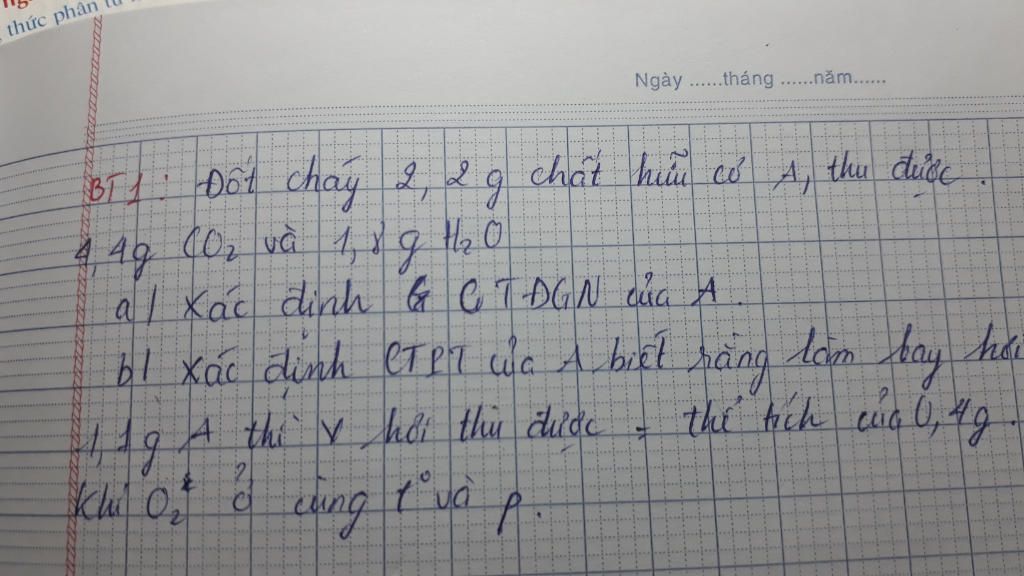 thức phân tử
Ngày ......tháng ......năm......
BT1: Đốt cháy 2,2g chất hữu cơ A, thu được.
4,4g CO₂ và 1,8g H₂O
a/ Xác định CTĐGN của A.
b/ Xác định CTPT của A biết rằng làm bay hơi
1,1g A thì V hơi thu được = thể tích của 0,4g.
khí O₂ ở cùng t° và p.